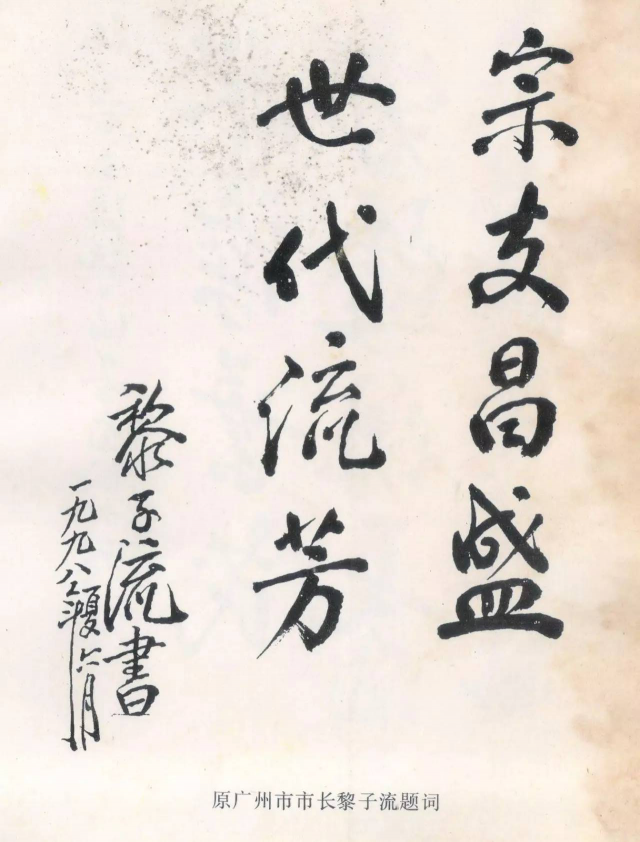 宗支昌盛
世代流芳
黎子流書
一九九八年夏六月
原广州市市长黎子流题词